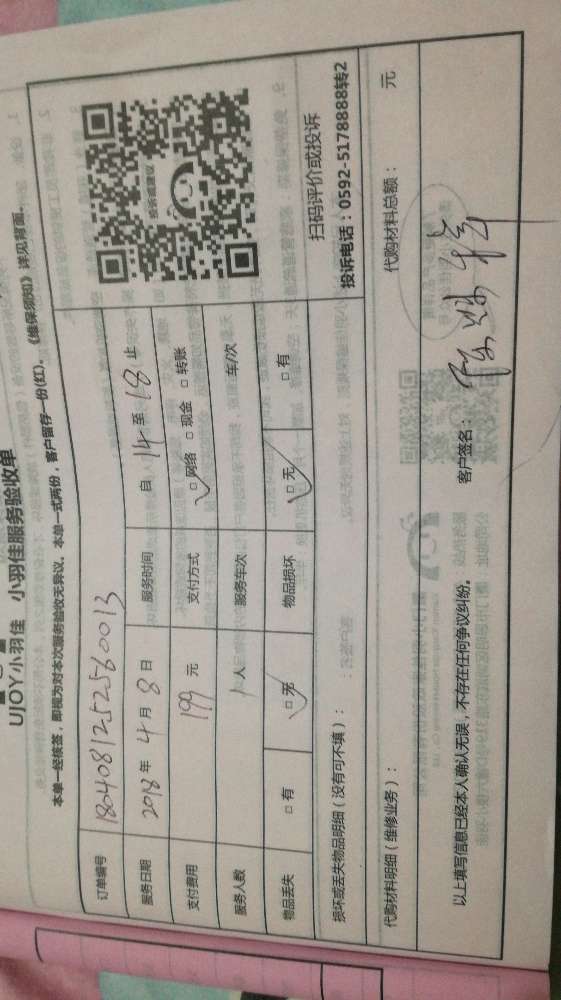 UJOY小羽佳 小羽佳服务验收单
本单一经核签，即视为对本次服务验收无异议。本单一式两份，客户留存一份(红)。《维保须知》详见背面。
订单编号 1804081252560013
服务日期 2018年4月8日 服务时间 自 14 至 18 止
支付费用 199 元 支付方式 □网络 □现金 □转账
服务人数 1人 服务车次 车/次
物品丢失 □有 □无 物品损坏 □无 □有
投诉或建议
扫码评价或投诉
投诉电话：0592-5178888转2
损坏或丢失物品明细（没有可不填）：
代购材料明细（维修业务）： 代购材料总额： 元
以上填写信息已经本人确认无误，不存在任何争议纠纷。 客户签名：